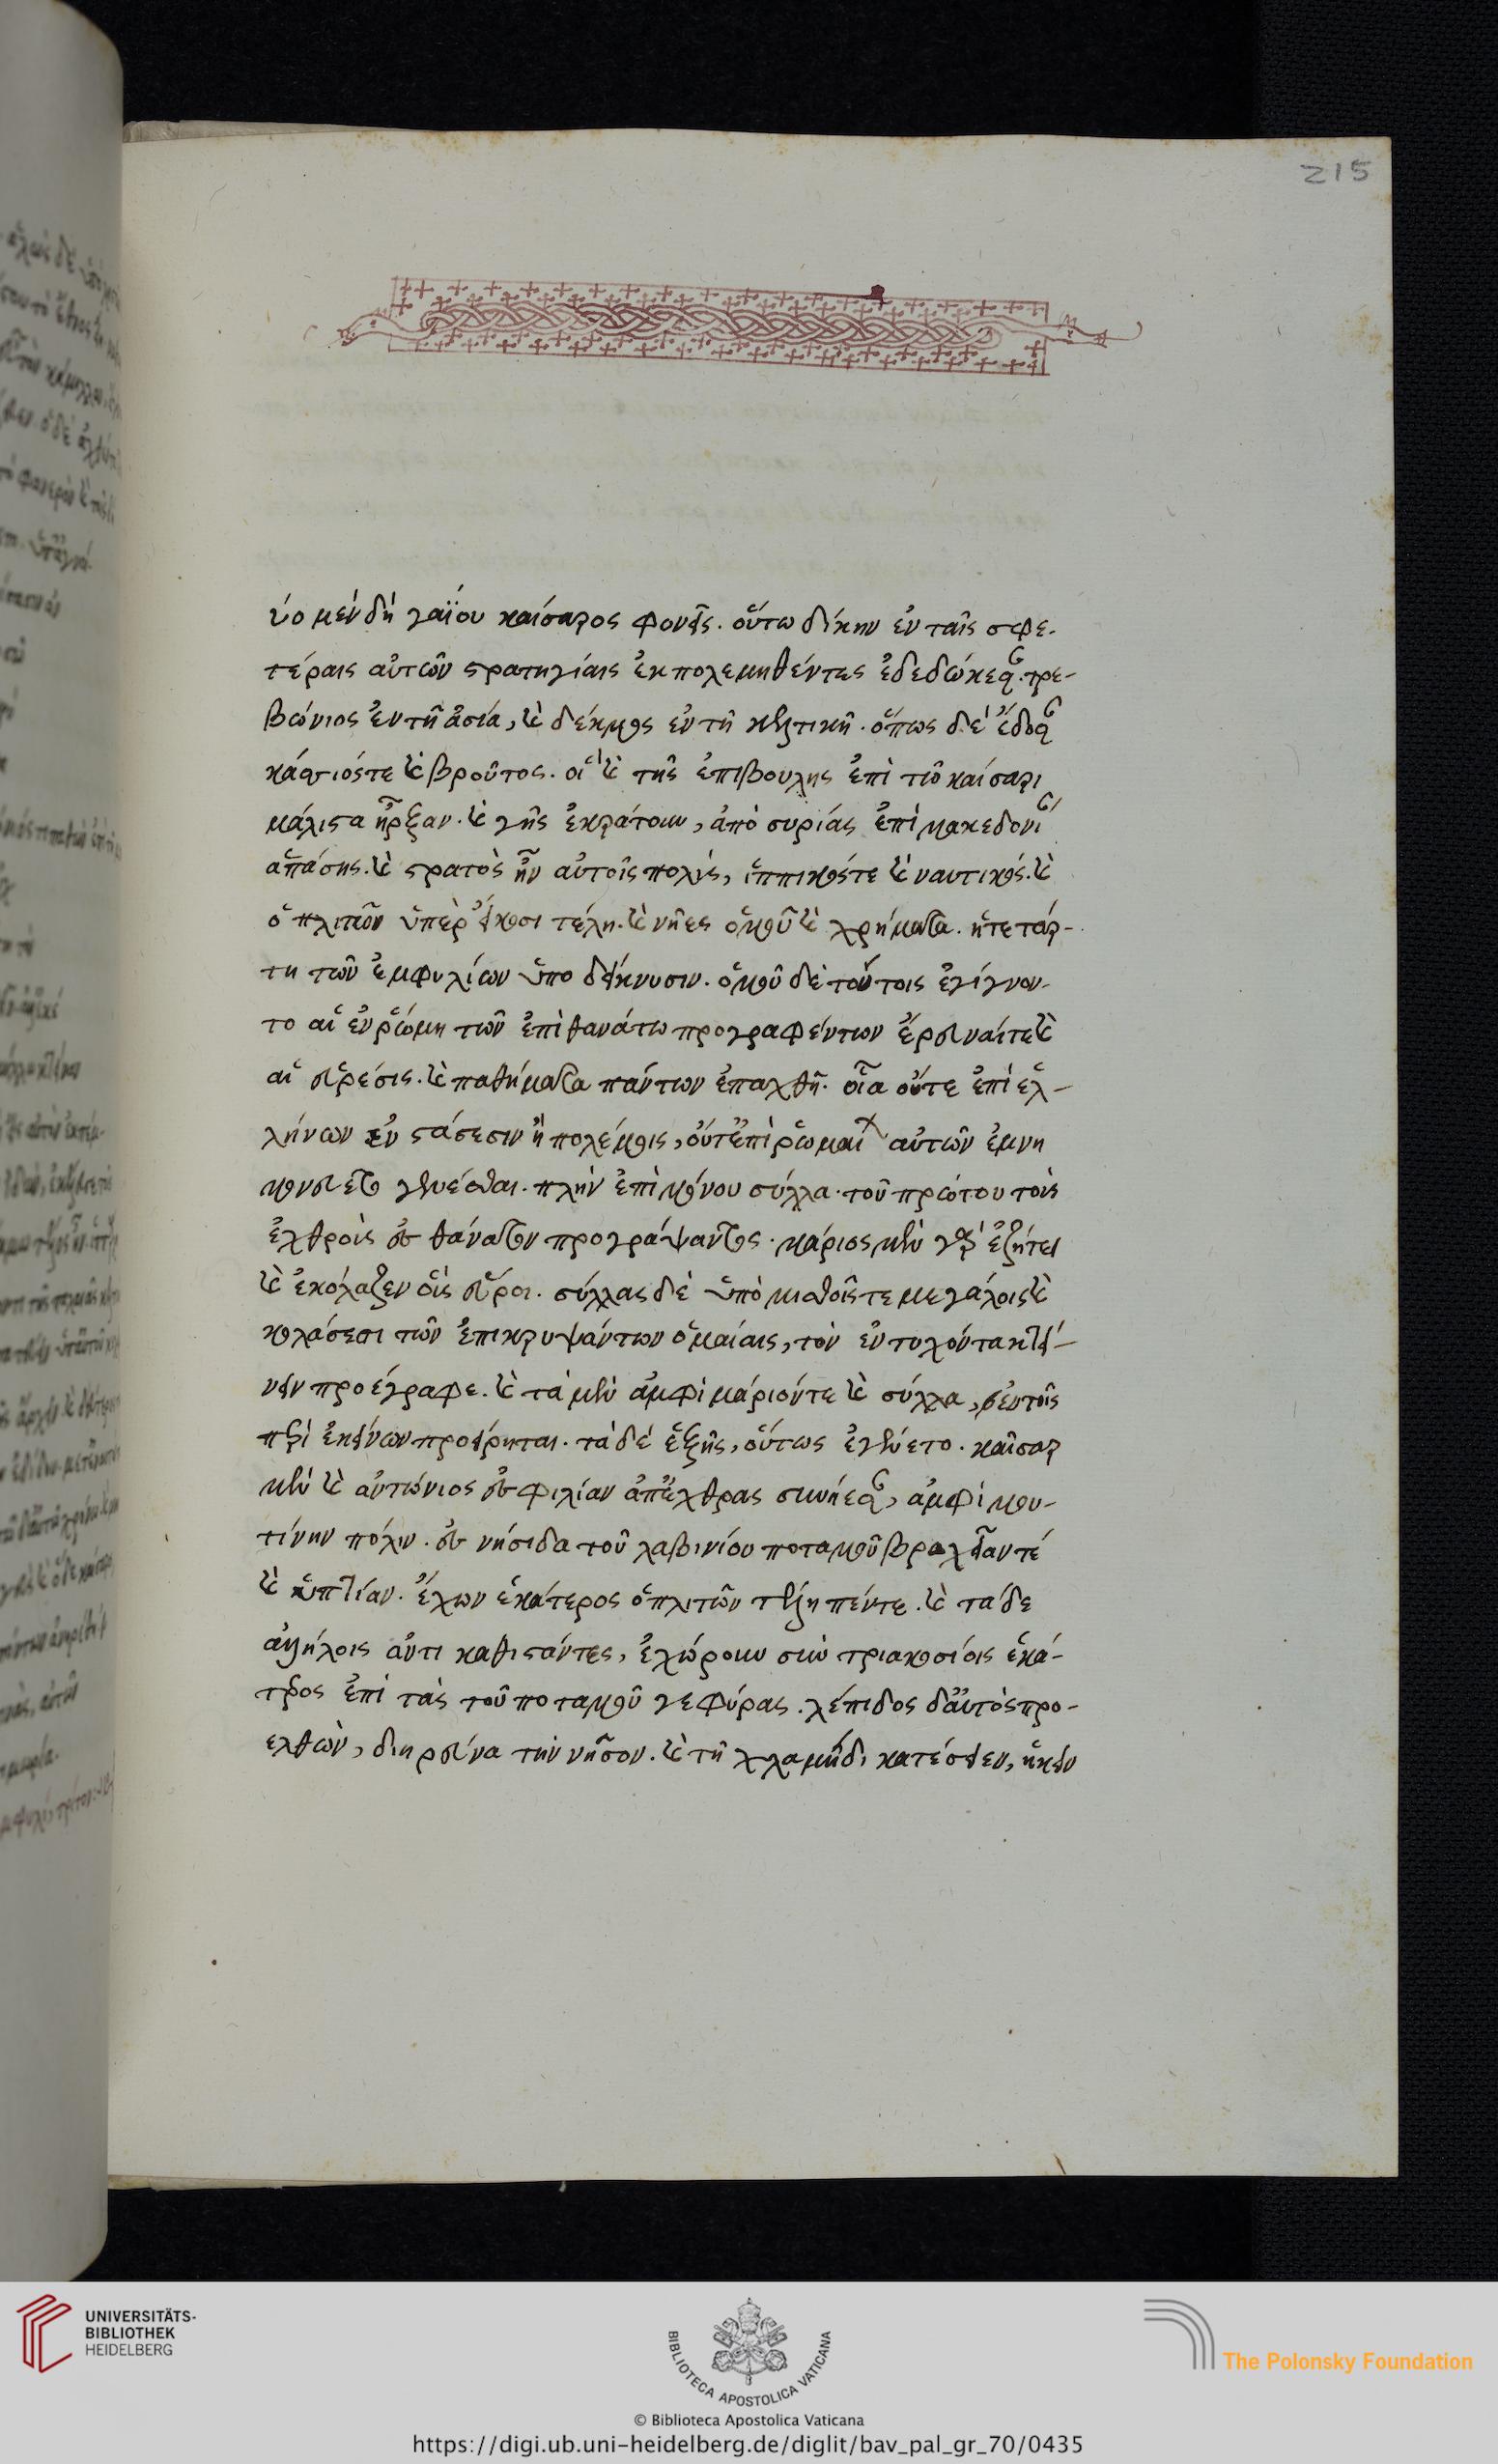 215
ύο μὲν δὴ γαΐου καίσαρος φονεῖς. οὕτω δίκην ἐν ταῖς σφε-
τέραις αὐτῶν στρατηγίαις ἐκπολεμηθέντες ἐδεδώκεσαν. τρε-
βώνιος ἐν τῆ ἀσία, καὶ δέκμος ἐν τῆ κελτικῆ. ὅπως δὲ ἔδοσαν
κάσσιός τε καὶ βροῦτος. οἳ καὶ τῆς ἐπιβουλης ἐπὶ τῶ καίσαρι
μάλιστα ἦρξαν. καὶ γῆς ἐκράτουν, ἀπὸ συρίας ἐπὶ μακεδονίαν
ἁπάσης. καὶ στρατὸς ἦν αὐτοῖς πολὺς, ἱππικός τε καὶ ναυτικός. καὶ
ὁπλιτῶν ὑπὲρ εἴκοσι τέλη. καὶ νῆες ὁμοῦ καὶ χρήματα. ἡ τετάρ-
τη τῶν ἐμφυλίων ὑποδείκνυσιν. ὁμοῦ δὲ τούτοις ἐγίγνον-
το αἱ ἐν ῥώμη τῶν ἐπὶ θανάτω προγραφέντων ἔρευναί τε καὶ
αἱ εὑρέσις. καὶ παθήματα πάντων ἐπαχθῆ. οἷα οὔτε ἐπὶ ἑλ-
λήνων ἐν στάσεσιν ἢ πολέμοις, οὔτ' ἐπὶ ῥωμαίων αὐτῶν ἐμνη
μονεύετο γενέσθαι. πλὴν ἐπὶ μόνου σύλλα. τοῦ πρώτου τοὺς
ἐχθροὺς ἐς θάνατον προγράψαντος. μάριος μὲν γὰρ ἐζήτει
καὶ ἐκόλαζεν οὓς εὕροι. σύλλας δὲ ὑπὸ μισθοῖς τε μεγάλοις καὶ
κολάσεσι τῶν ἐπικρυψάντων ὁμοίαις, τὸν ἐντυχόντα κτεί-
νειν προέγραφε. καὶ τὰ μὲν ἀμφὶ μάριόν τε καὶ σύλλα, ἐν τοῖς
περὶ ἐκείνων προείρηται. τὰ δὲ ἑξῆς, οὕτως ἐγένετο. καῖσαρ
μὲν καὶ ἀντώνιος ἐς φιλίαν ἀπ' ἔχθρας συνήεσαν, ἀμφὶ μου-
τίνην πόλιν. ἐς νησίδα τοῦ λαβινίου ποταμοῦ βραχεῖαν τέ
καὶ ὑπτίαν. ἔχων ἑκάτερος ὁπλιτῶν τέλη πέντε. καὶ τάδε
ἀλλήλοις ἀντικαθιστάντες, ἐχώρουν σὺν τριακοσίοις ἑκά-
τερος ἐπὶ τὰς τοῦ ποταμοῦ γεφύρας. λέπιδος δ' αὐτὸς προ-
ελθὼν, διηρεύνα τὴν νῆσον. καὶ τῆ χλαμύδι κατέσειεν, ἥκειν
UNIVERSITÄTS-
BIBLIOTHEK
HEIDELBERG
BIBLIOTECA APOSTOLICA VATICANA
The Polonsky Foundation
© Biblioteca Apostolica Vaticana
https://digi.ub.uni-heidelberg.de/diglit/bav_pal_gr_70/0435